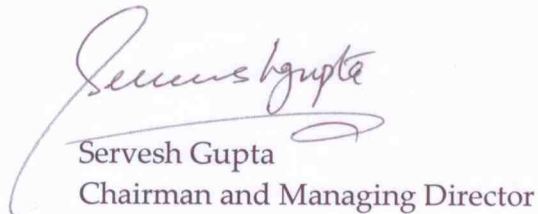 Serveshgupta
Servesh Gupta
Chairman and Managing Director